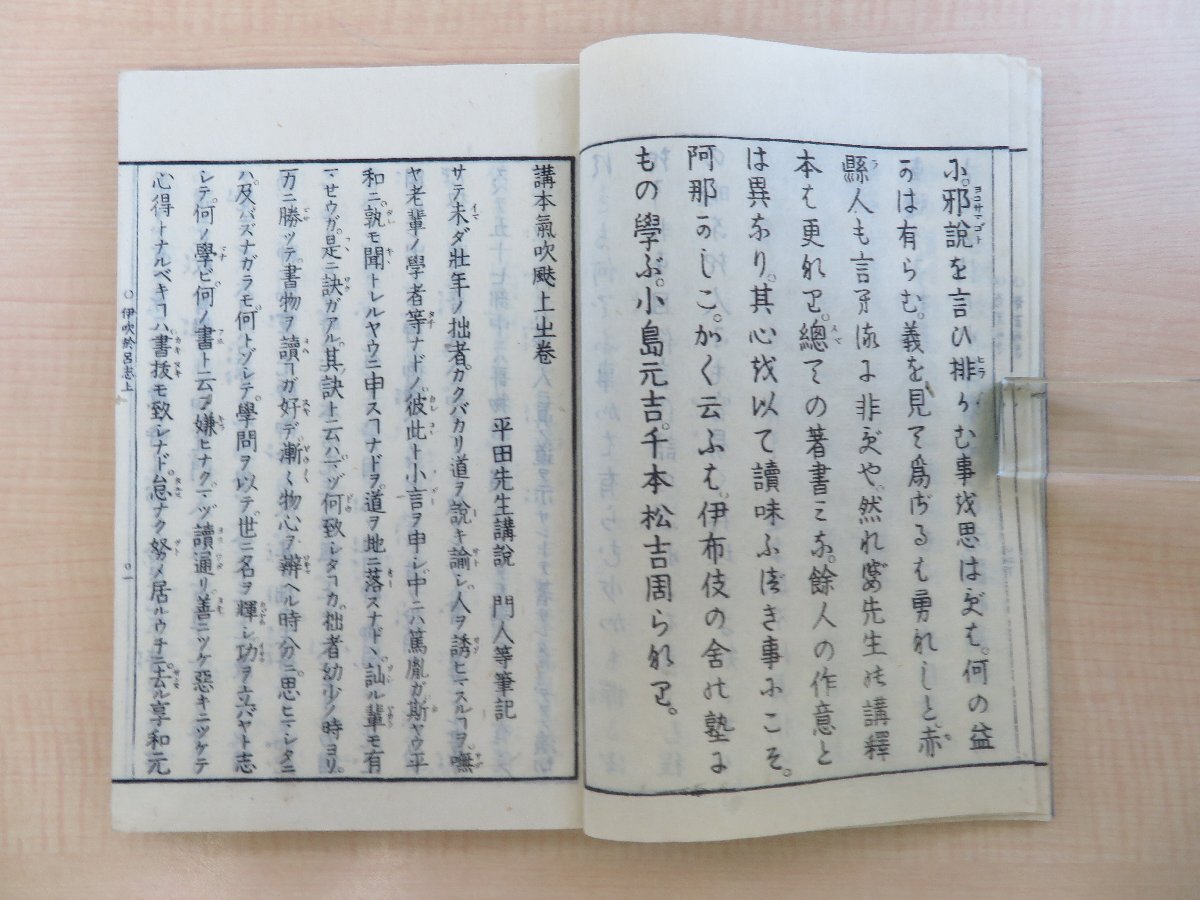 に。邪說を言ひ排らむ事を思はずは。何の益
かは有らむ。義を見て爲ざるは勇れしと。赤
縣人も言するに非ずや。然れど先生の講釋
本は更なり。總ての著書みな。餘人の作意と
は異なり。其心を以て讀味ふべき事にこそ。
阿那かしこ。かく云ふは。伊布伎の舍の塾に
もの學ぶ。小島元吉。千本松吉周らなり。
講本氣吹颫上之卷
平田先生講說 門人等筆記
サテ未ダ壯年ノ拙者。カクバカリ道ヲ說キ諭シ。人ヲ誘ヒマスルヿヲ。嘸
ヤ老輩ノ學者等ナドノ。彼此ト小言ヲ申シ。中ニハ篤胤ガ斯ヤウ平
和ニ。孰モ聞トレルヤウニ申スヿナドヲ。道ヲ地ニ落スナドヽ訕ル輩モ有
マセウガ。是ニ訣ガアル。其訣ト云ハ。マヅ何致シタヿカ。拙者幼少ノ時ヨリ。
万ニ勝ツテ書物ヲ讀ヿガ好デ。漸く物心ヲ辨ヘル時分ニ。思ヒマシタニ
ハ。及バズナガラモ。何トゾシテ。學問ヲ以テ。世ニ名ヲ輝シ。功ヲ立バヤト志
シテ。何ノ學ビ何ノ書ト云フ嫌ヒナク。マヅ讀通リ。善ニツケ惡キニツケテ
心得トナルベキヿハ。書拔モ致シナド。怠ナク努メ居ルウチニ。去ル享和元
○伊吹於呂志上 ○一